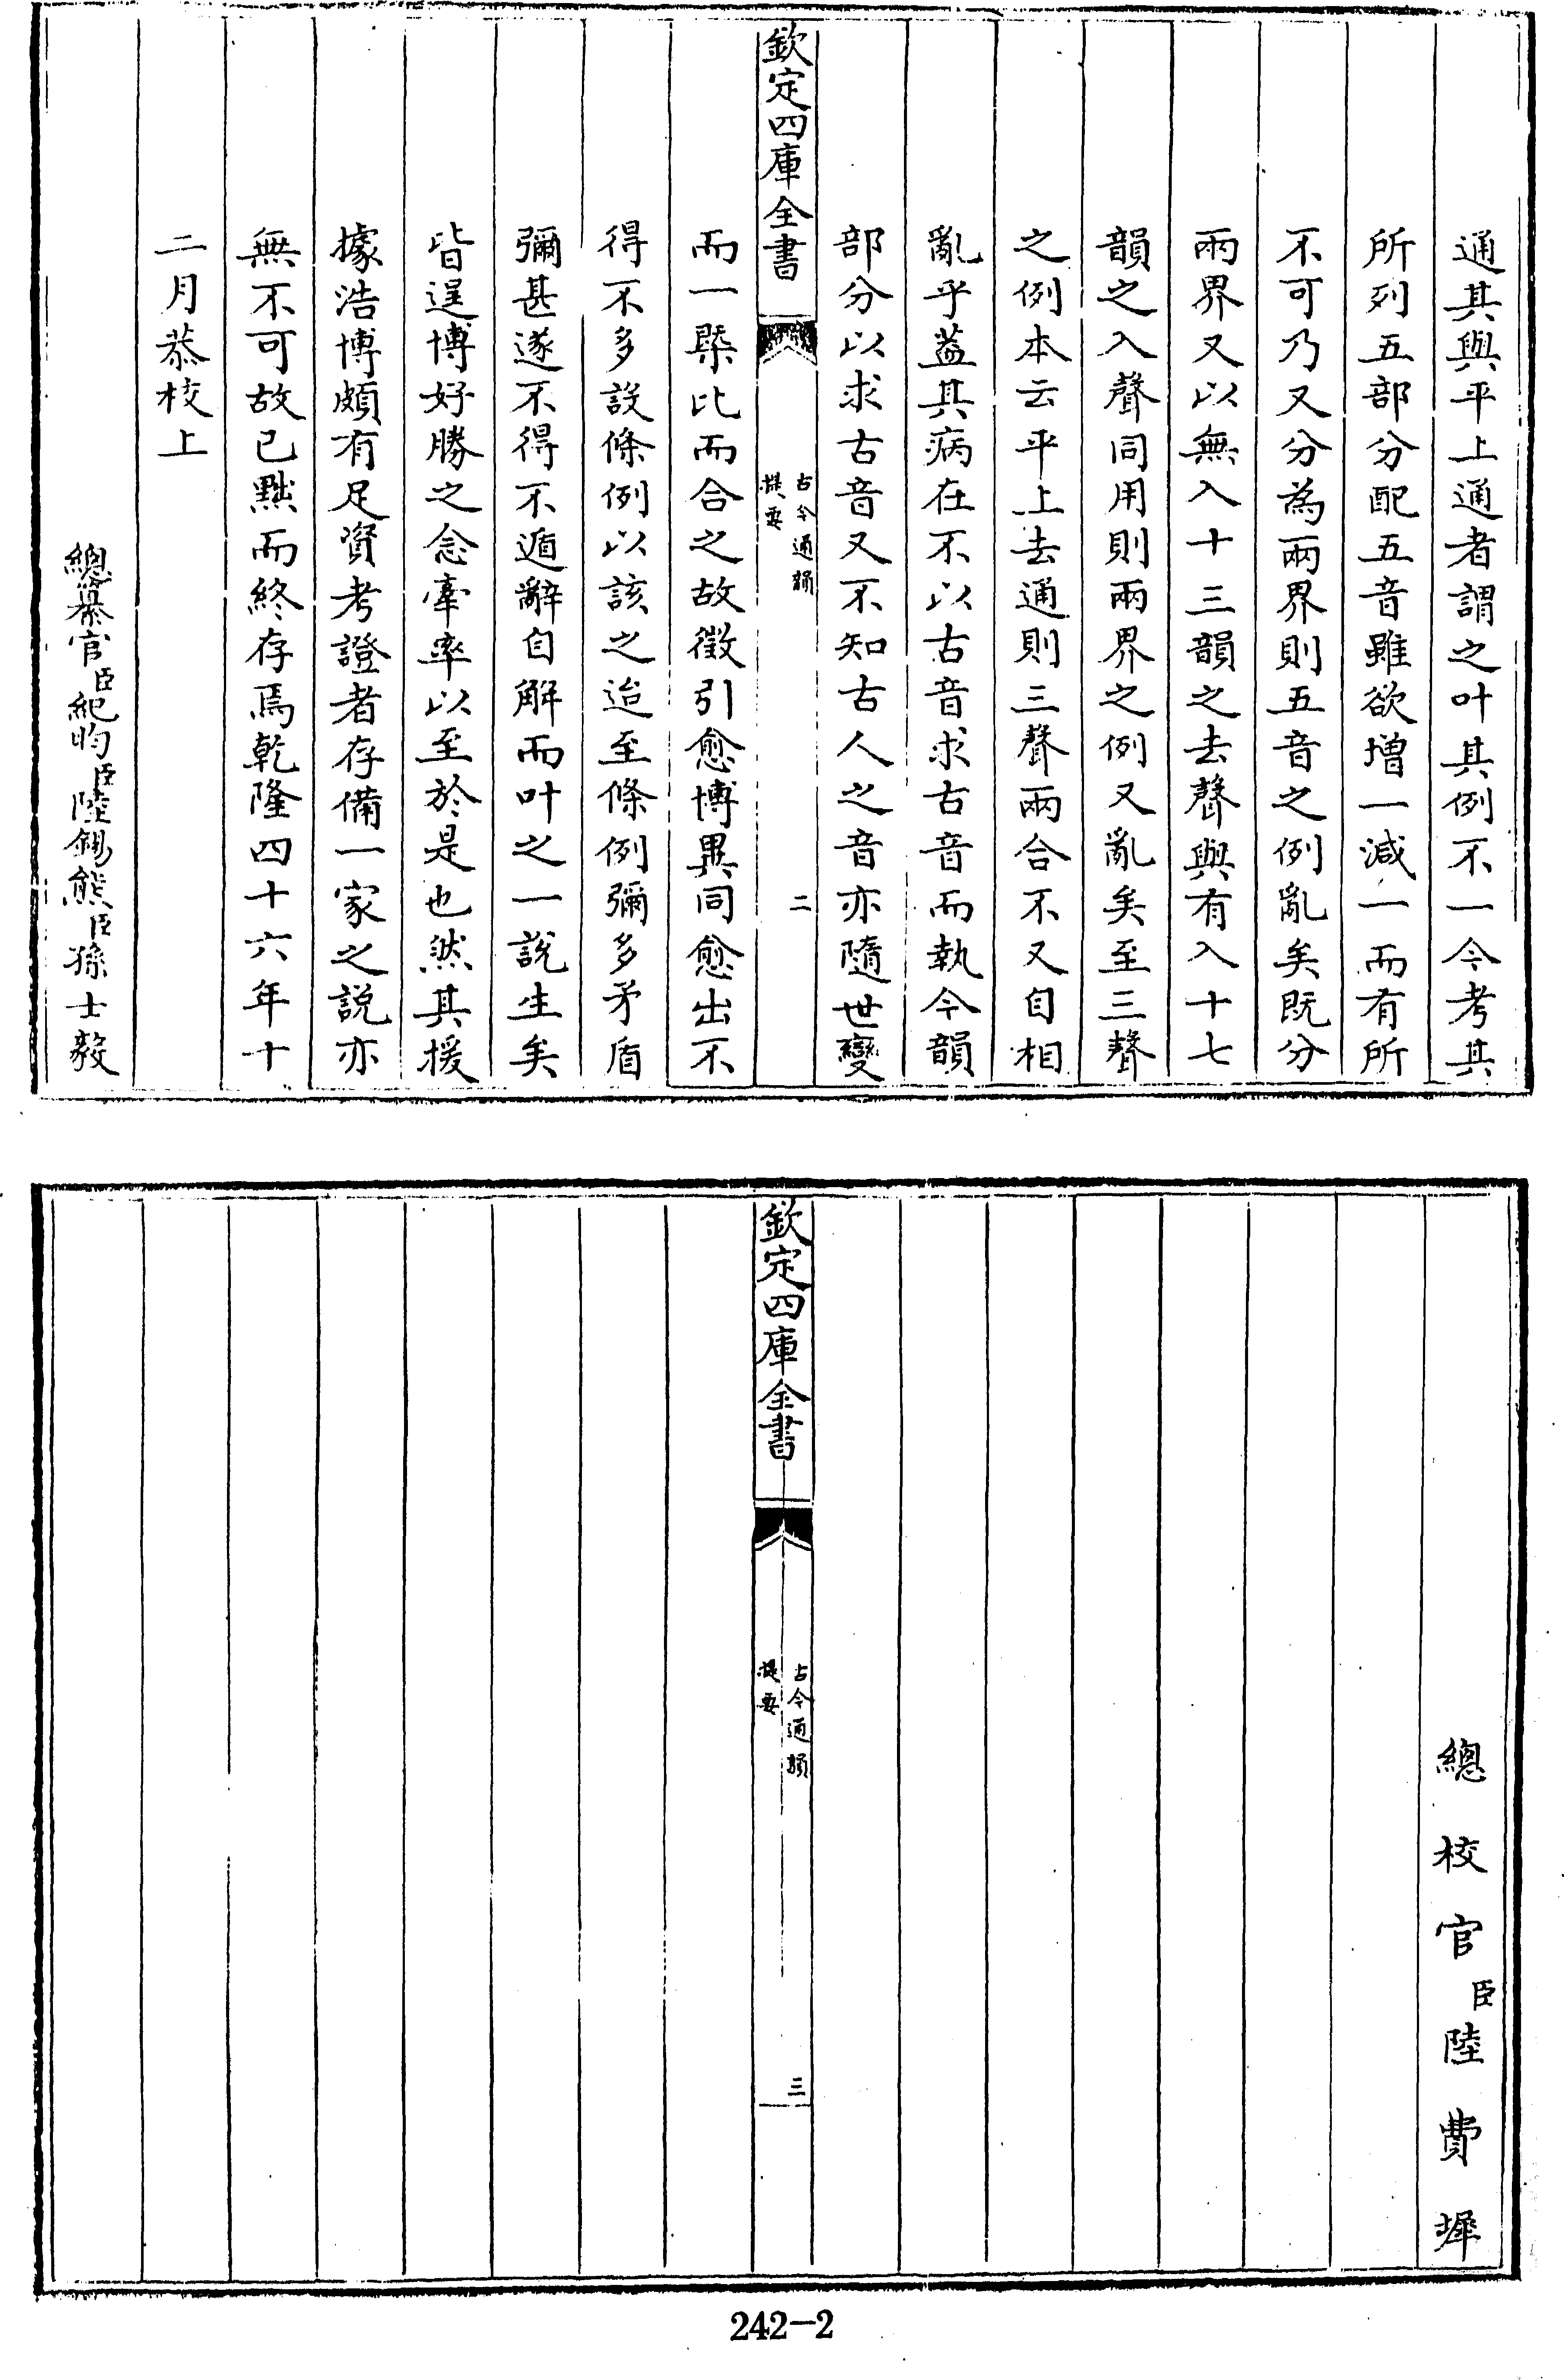 通其與平上通者謂之叶其例不一今考其
所列五部分配五音雖欲增一減一而有所
不可乃又分為兩界則五音之例亂矣既分
兩界又以無入十三韻之去聲與有入十七
韻之入聲同用則兩界之例又亂矣至三聲
之例本云平上去通則三聲兩合不又自相
亂乎葢其病在不以古音求古音而執今韻
部分以求古音又不知古人之音亦隨世變
欽定四庫全書
古今通韻
提要
二
而一槩比而合之故徵引愈博異同愈出不
得不多設條例以該之迨至條例彌多矛盾
彌甚遂不得不遁辭自解而叶之一說生矣
皆逞博好勝之念牽率以至於是也然其援
據浩博頗有足資考證者存備一家之說亦
無不可故已黜而終存焉乾隆四十六年十
二月恭校上
總纂官臣紀昀臣陸錫熊臣孫士毅
總校官臣陸費墀
欽定四庫全書
古今通韻
提要
三
242-2